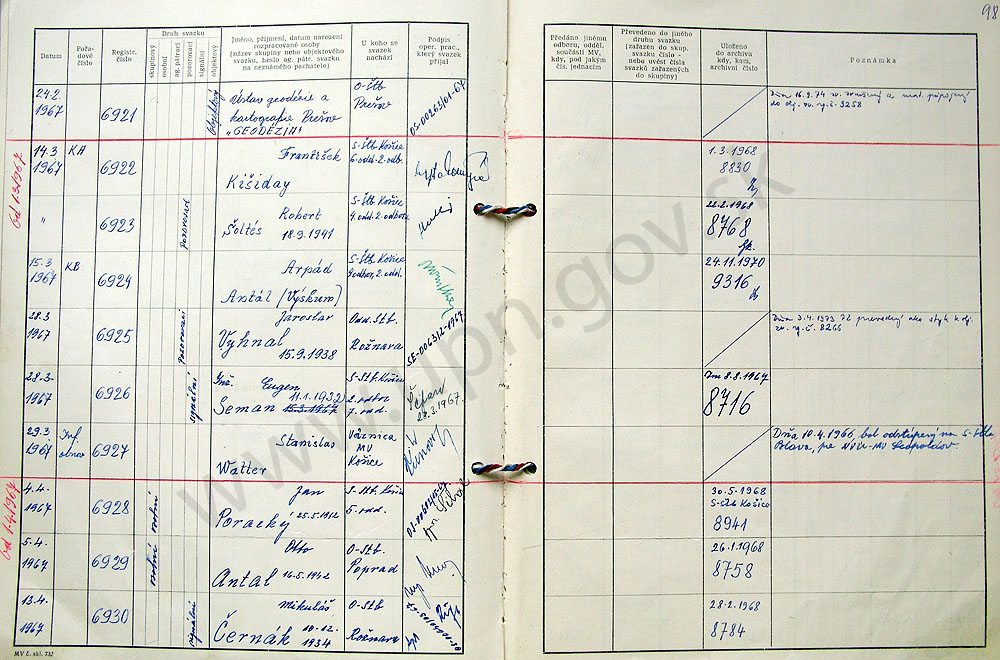 98
Datum
Pořadové číslo
Registr. číslo
Druh svazku
skupinový
osobní
ag. pátrací
pozorovací
signální
objektový
Jméno, příjmení, datum narození
rozpracované osoby
(název skupiny nebo objektového
svazku, heslo ag. pátr. svazku
na neznámého pachatele)
U koho se
svazek
nachází
Podpis
oper. prac.,
který svazek
přijal
Předáno jinému
odboru, odděl.
součásti MV,
kdy, pod jakým
čís. jednacím
Převedeno do jiného
druhu svazku
(zařazen do skup.
svazku číslo -
nebo uvést čísla
svazků zařazených
do skupiny)
Uloženo
do archivu
kdy, kam,
archivní číslo
Poznámka
24.2.
1967
6921
objektový
Ústav geodézie a
kartografie Prešov
"GEODÉZIA"
O-ŠtB
Prešov
OS-00263/01-67
Dňa 16.9.74 zv. zrušený a mat. pripojený
do obj. zv. r. č. 3258
Od 1.3.1967
14.3.
1967
KA
6922
František
Kišiday
S-Štb Košice
6.odd.-2.odb.
1.3.1968
8830
"
6923
pozorovací
Robert
Šoltés 18.9.1941
S-Štb Košice
4.odd.-2.odboru
22.2.1968
8768
15.3.
1967
KB
6924
Arpád
Antál (Výskum)
S-Štb Košice
2.odd.
24.11.1970
9316
28.3.
1967
6925
pozorovací
Jaroslav
Vyhnal
15.9.1938
Odd.-Štb.
Rožňava
SE-00631
Dňa 3.4.1973 prevedený ako styk k obj.
zv. r. č. 8266
28.3.
1967
6926
signální
Ing. Eugen
11.1.1932
Seman 15.3.1967
S-Štb. Košice
2.odbor
7.odd.
28.3.1967
Dňa 8.8.1967
8716
29.3.
1967
Inf.
obnov.
6927
Stanislav
Watter
Väznica
MV
Košice
Dňa 10.4.1966, bol odstúpený na S-Štb
Blava, pre NVÚ-MV Leopoldov.
Od 1.4.1967
4.4.
1967
6928
osobní
Ján
Poracký 25.5.1912
S-Štb. Košice
5.odd.
30.5.1968
S-Štb Košice
8941
5.4.
1967
6929
osobní
Otto
Antal 16.5.1942
O-Štb.
Poprad
26.1.1968
8758
13.4.
1967
6930
signální
Mikuláš
Černák 10.12.
1934
O-Štb
Rožňava
28.2.1968
8784
MV č. skl. 732
www.upn.gov.sk